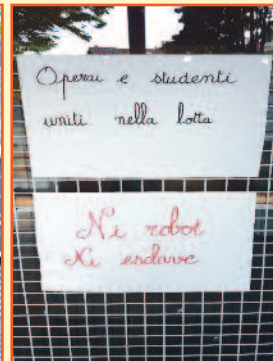 Operai e studenti
uniti nella lotta
Ni robot
Ni esclave